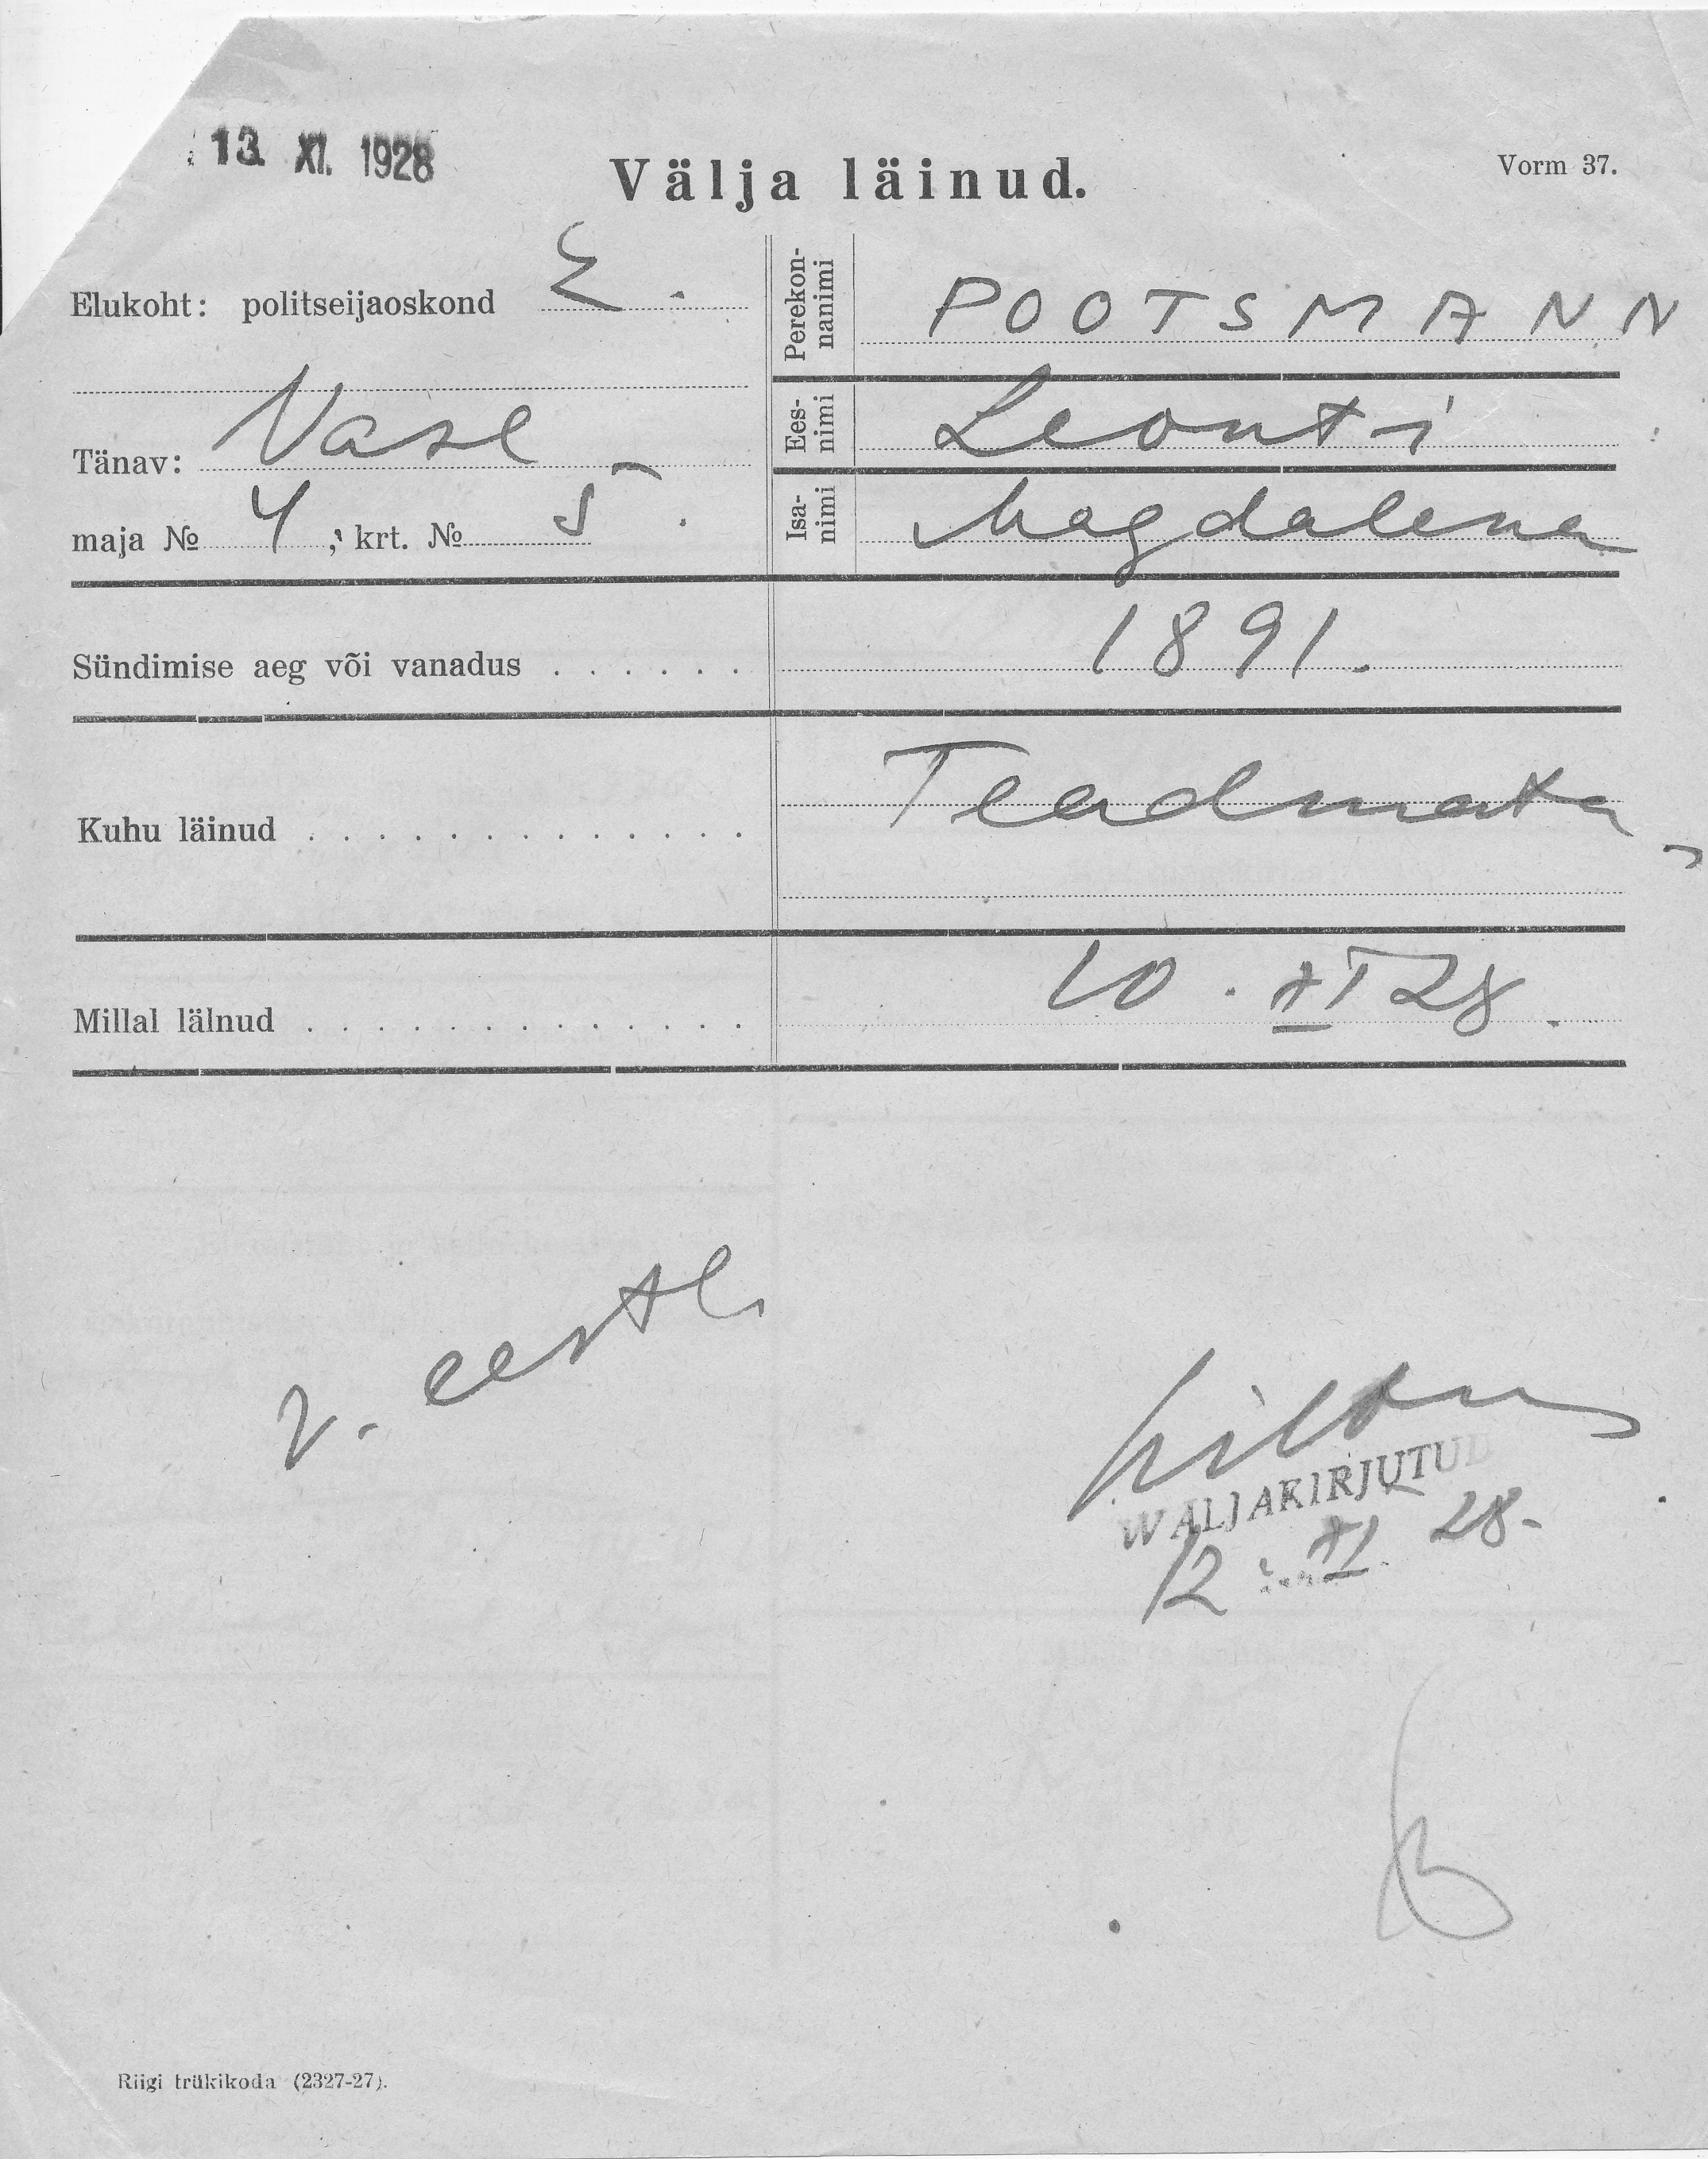 13. XI. 1928
Välja läinud.
Vorm 37.
Elukoht: politseijaoskond
Tänav: Vase
maja № 4, krt. № 5.
Perekon-
nanimi
POOTSMANN
Ees-
nimi
Leonti
Isa-
nimi
Magdalena
Sündimise aeg või vanadus . . . . . . 1891.
Kuhu läinud . . . . . . . . . . . . . Teadmata
Millal läinud . . . . . . . . . . . . . 10. XI 28.
v. eesti
WÄLJAKIRJUTUD
12. XI. 28.
Riigi trükikoda (2327-27).